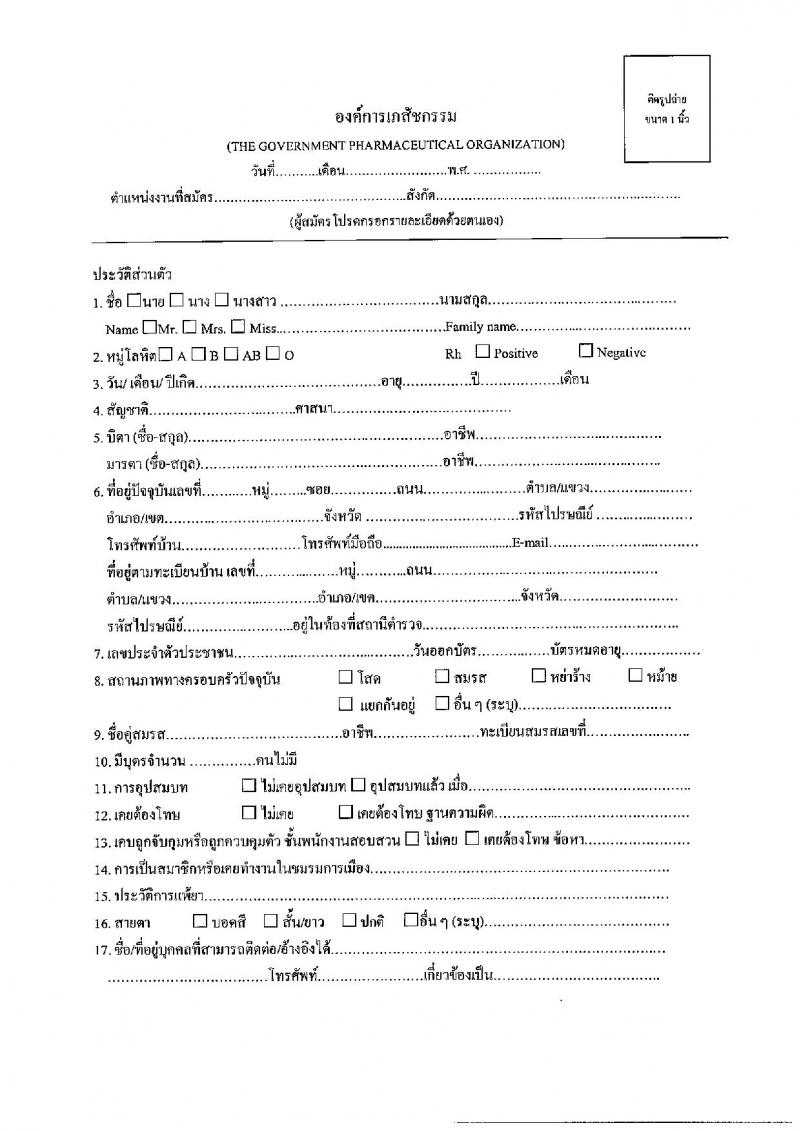 ติดรูปถ่าย
ขนาด 1 นิ้ว
องค์การเภสัชกรรม
(THE GOVERNMENT PHARMACEUTICAL ORGANIZATION)
วันที่...........เดือน..........................พ.ศ. .................
ตำแหน่งงานที่สมัคร................................................สังกัด.............................................................
(ผู้สมัครโปรดกรอกรายละเอียดด้วยตนเอง)
ประวัติส่วนตัว
1. ชื่อ ☐นาย ☐ นาง ☐ นางสาว ........................................นามสกุล................................................
Name ☐Mr. ☐ Mrs. ☐ Miss...........................................Family name............................................
2. หมู่โลหิต☐ A ☐ B ☐ AB ☐ O Rh ☐ Positive ☐ Negative
3. วัน/ เดือน/ ปีเกิด..............................................อายุ.................ปี....................เดือน
4. สัญชาติ.....................................ศาสนา.............................................
5. บิดา (ชื่อ-สกุล)................................................................อาชีพ...............................................
มารดา (ชื่อ-สกุล).............................................................อาชีพ...............................................
6. ที่อยู่ปัจจุบันเลขที่.............หมู่.........ซอย.................ถนน..........................ตำบล/แขวง..........................
อำเภอ/เขต........................................จังหวัด ......................................รหัสไปรษณีย์ ........................
โทรศัพท์บ้าน..............................โทรศัพท์มือถือ.......................................E-mail......................................
ที่อยู่ตามทะเบียนบ้าน เลขที่.....................หมู่............ถนน.........................................................
ตำบล/แขวง.....................................อำเภอ/เขต.....................................จังหวัด..............................
รหัสไปรษณีย์...........................อยู่ในท้องที่สถานีตำรวจ................................................................
7. เลขประจำตัวประชาชน.............................................วันออกบัตร..................บัตรหมดอายุ....................
8. สถานภาพทางครอบครัวปัจจุบัน ☐ โสด ☐ สมรส ☐ หย่าร้าง ☐ หม้าย
☐ แยกกันอยู่ ☐ อื่น ๆ (ระบุ)......................................
9. ชื่อคู่สมรส...........................................อาชีพ..................................ทะเบียนสมรสเลขที่..........................
10. มีบุตรจำนวน ...............คนไม่มี
11. การอุปสมบท ☐ ไม่เคยอุปสมบท ☐ อุปสมบทแล้ว เมื่อ........................................................
12. เคยต้องโทษ ☐ ไม่เคย ☐ เคยต้องโทษ ฐานความผิด................................................
13. เคยถูกจับกุมหรือถูกควบคุมตัว ชั้นพนักงานสอบสวน ☐ ไม่เคย ☐ เคยต้องโทษ ข้อหา..........................
14. การเป็นสมาชิกหรือเคยทำงานในชมรมการเมือง...........................................................................
15. ประวัติการแพ้ยา....................................................................................................................
16. สายตา ☐ บอดสี ☐ สั้น/ยาว ☐ ปกติ ☐อื่น ๆ (ระบุ).............................................
17. ชื่อ/ที่อยู่บุคคลที่สามารถติดต่อ/อ้างอิงได้....................................................................................
........................................โทรศัพท์...........................เกี่ยวข้องเป็น..........................................